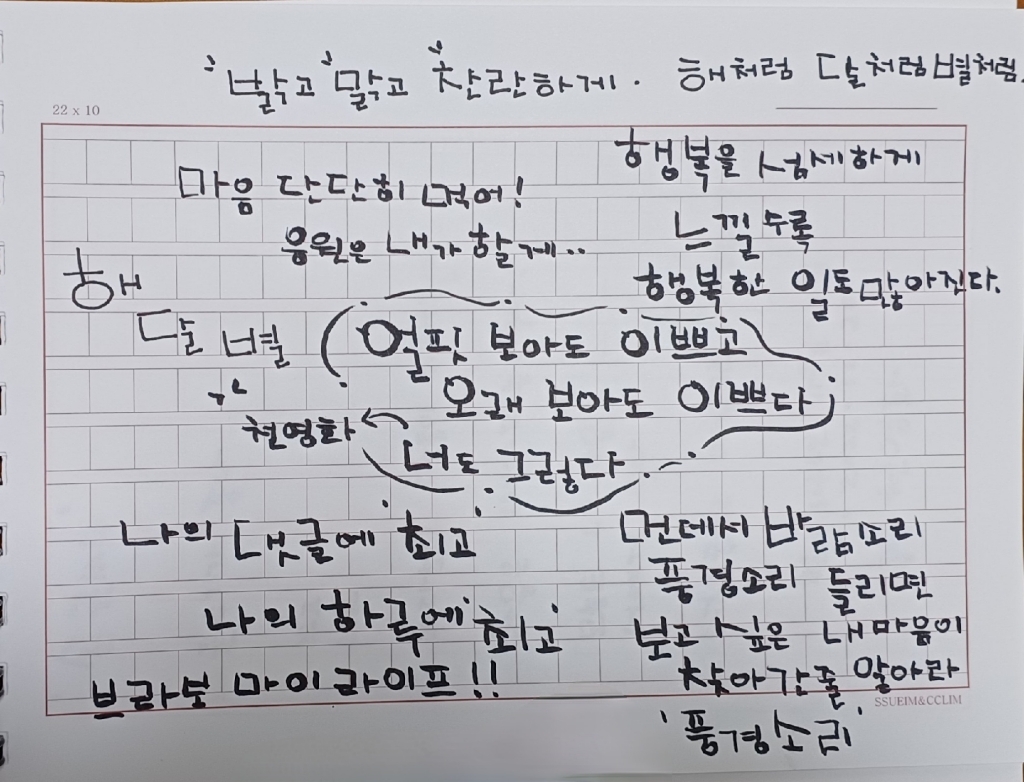 '밝고' 맑고 '찬란하게. 해처럼 달처럼 별처럼.
22 x 10
마음 단단히 먹어!
응원은 내가 할게..
행복을 섬세하게
느낄수록
행복한 일도 많아진다.
해
달 별
얼핏 보아도 이쁘고
오래 보아도 이쁘다
너도 그렇다
천영화
나의 댓글에 '최고'
나의 하루에 '최고'
브라보 마이 라이프!!
먼데서 바람소리
풍경소리 들리면
보고싶은 내마음이
찾아간줄 알아라
'풍경소리'
SSUEIM&CCLIM